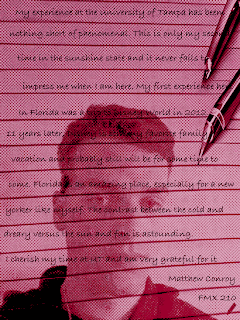 My experience at the university of Tampa has been
nothing short of phenomenal. This is only my second
time in the sunshine state and it never fails to
impress me when I am here. My first experience he
In Florida was a world in 2012.
11 years later, my favorite family
vacation and probably still will be for some time to
come. Florida is an my place, especially for a new
yorker like myself. The contrast between the cold and
dreary versus the sun and fun is astounding.
I cherish my time at UT and am very grateful for it
Matthew Conroy
FMX 210